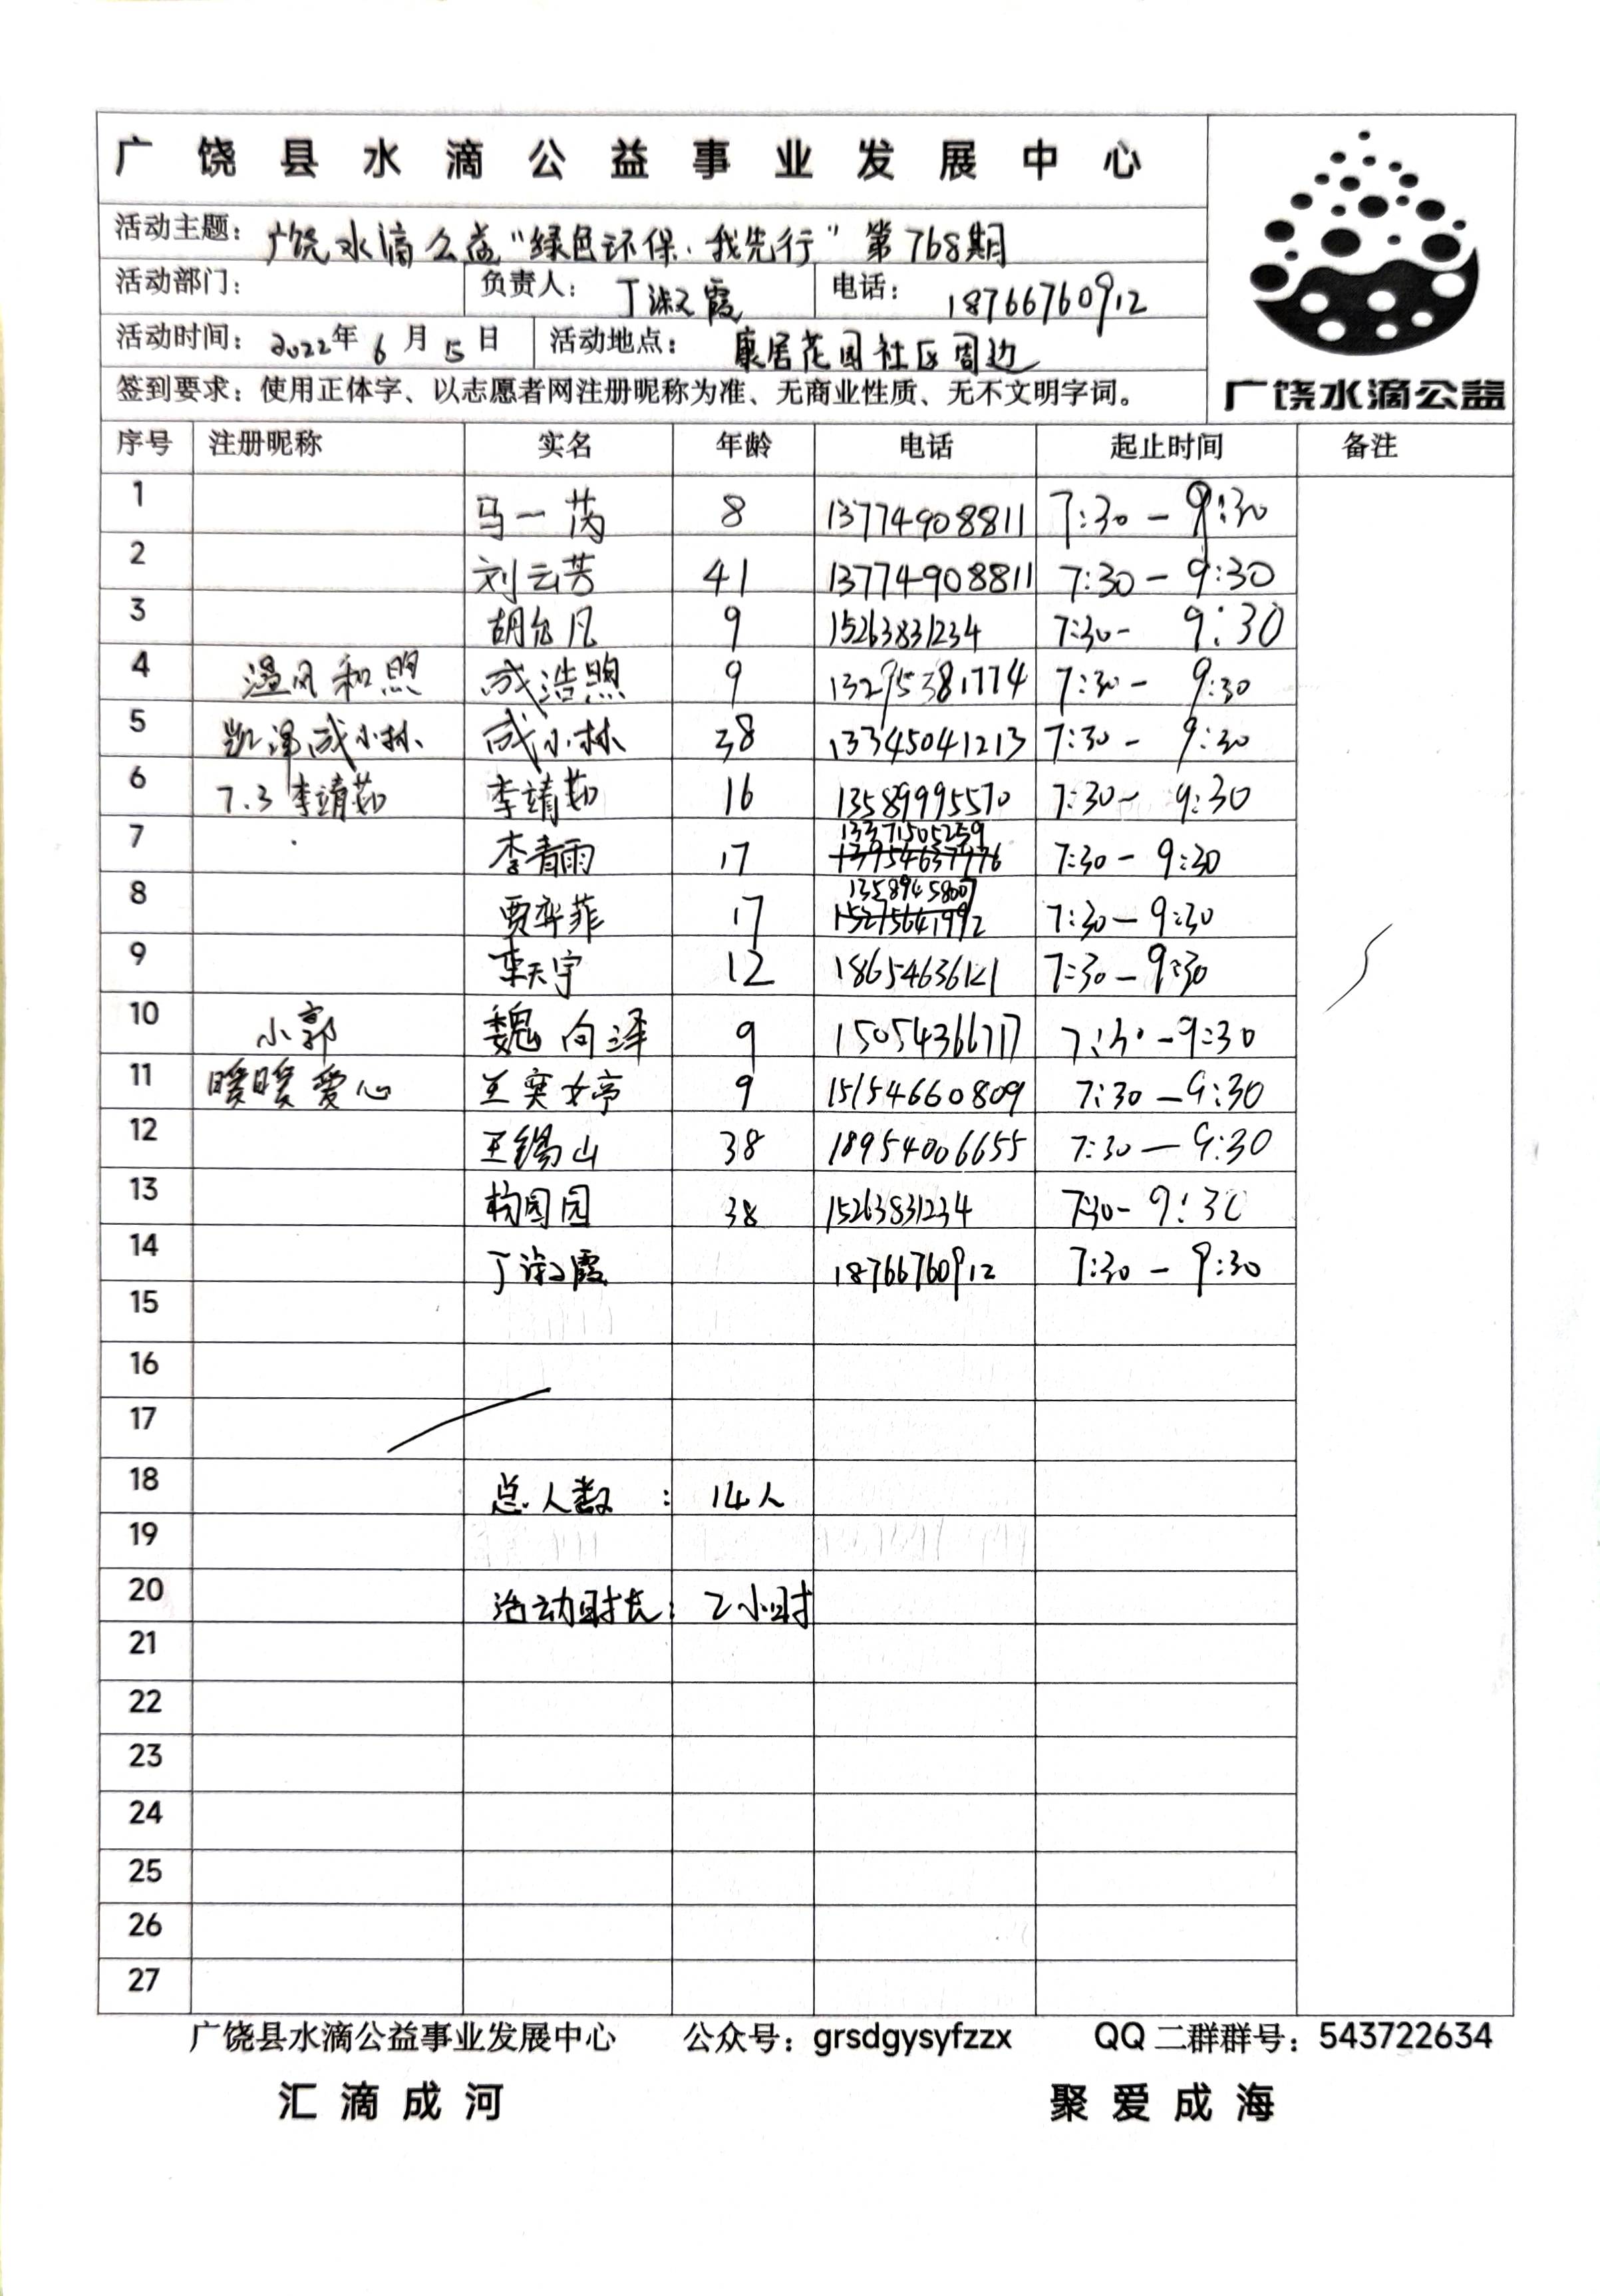 广饶县水滴公益事业发展中心
活动主题: 广饶水滴公益“绿色环保·我先行”第768期
活动部门: 负责人: 丁淑霞 电话: 18766760912
活动时间: 2022年 6 月 5 日 活动地点: 康居花园社区周边
签到要求: 使用正体字、以志愿者网注册昵称为准、无商业性质、无不文明字词。
广饶水滴公益
序号 注册昵称 实名 年龄 电话 起止时间 备注
1 马一芮 8 13774908811 7:30-9:30
2 刘云芳 41 13774908811 7:30-9:30
3 胡允凡 9 15263831234 7:30-9:30
4 温风和煦 成浩煦 9 13295381774 7:30-9:30
5 凯泽成小林 成小林 38 13345041213 7:30-9:30
6 7.3李靖茹 李靖茹 16 13589995570 7:30-9:30
7 李青雨 17 13371505259 7:30-9:30
8 贾弈菲 17 13589458007 7:30-9:30
9 天宇 12 18654636121 7:30-9:30
10 小郭 魏向泽 9 15054366717 7:30-9:30
11 暖暖爱心 王奕婷 9 15154660809 7:30-9:30
12 王锡山 38 18954006655 7:30-9:30
13 杨园园 38 15263831234 7:30-9:30
14 丁淑霞 18766760912 7:30-9:30
15
16
17
18 总人数: 14人
19
20 活动时长: 2小时
21
22
23
24
25
26
27
广饶县水滴公益事业发展中心 公众号: grsdgysyfzzx QQ二群群号: 543722634
汇滴成河 聚爱成海